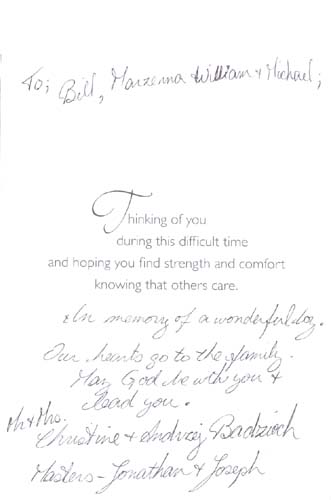 To; Bill, Marzenna William & Michael;
Thinking of you
during this difficult time
and hoping you find strength and comfort
knowing that others care.
& In memory of a wonderful dog.
Our hearts go to the family.
May God be with you &
lead you.
Mr & Mrs.
Christine & Andrzej Badzioch
Masters - Jonathan & Joseph